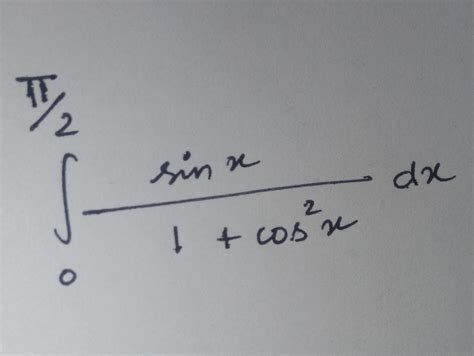 π/2
∫ sin x / 1 + cos²x dx
0